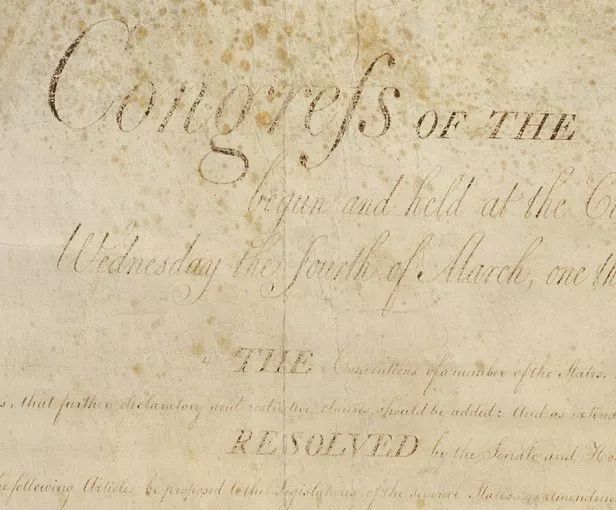 Congreſs OF THE
begun and held at the C
Wednesday the Fourth of March, one th
THE Conventions of a number of the States,
s, that further declaratory and restrictive clauses should be added: And as exten
RESOLVED by the Senate and Ho
he following Articles be proposed to the Legislatures of the several States, as amendmen